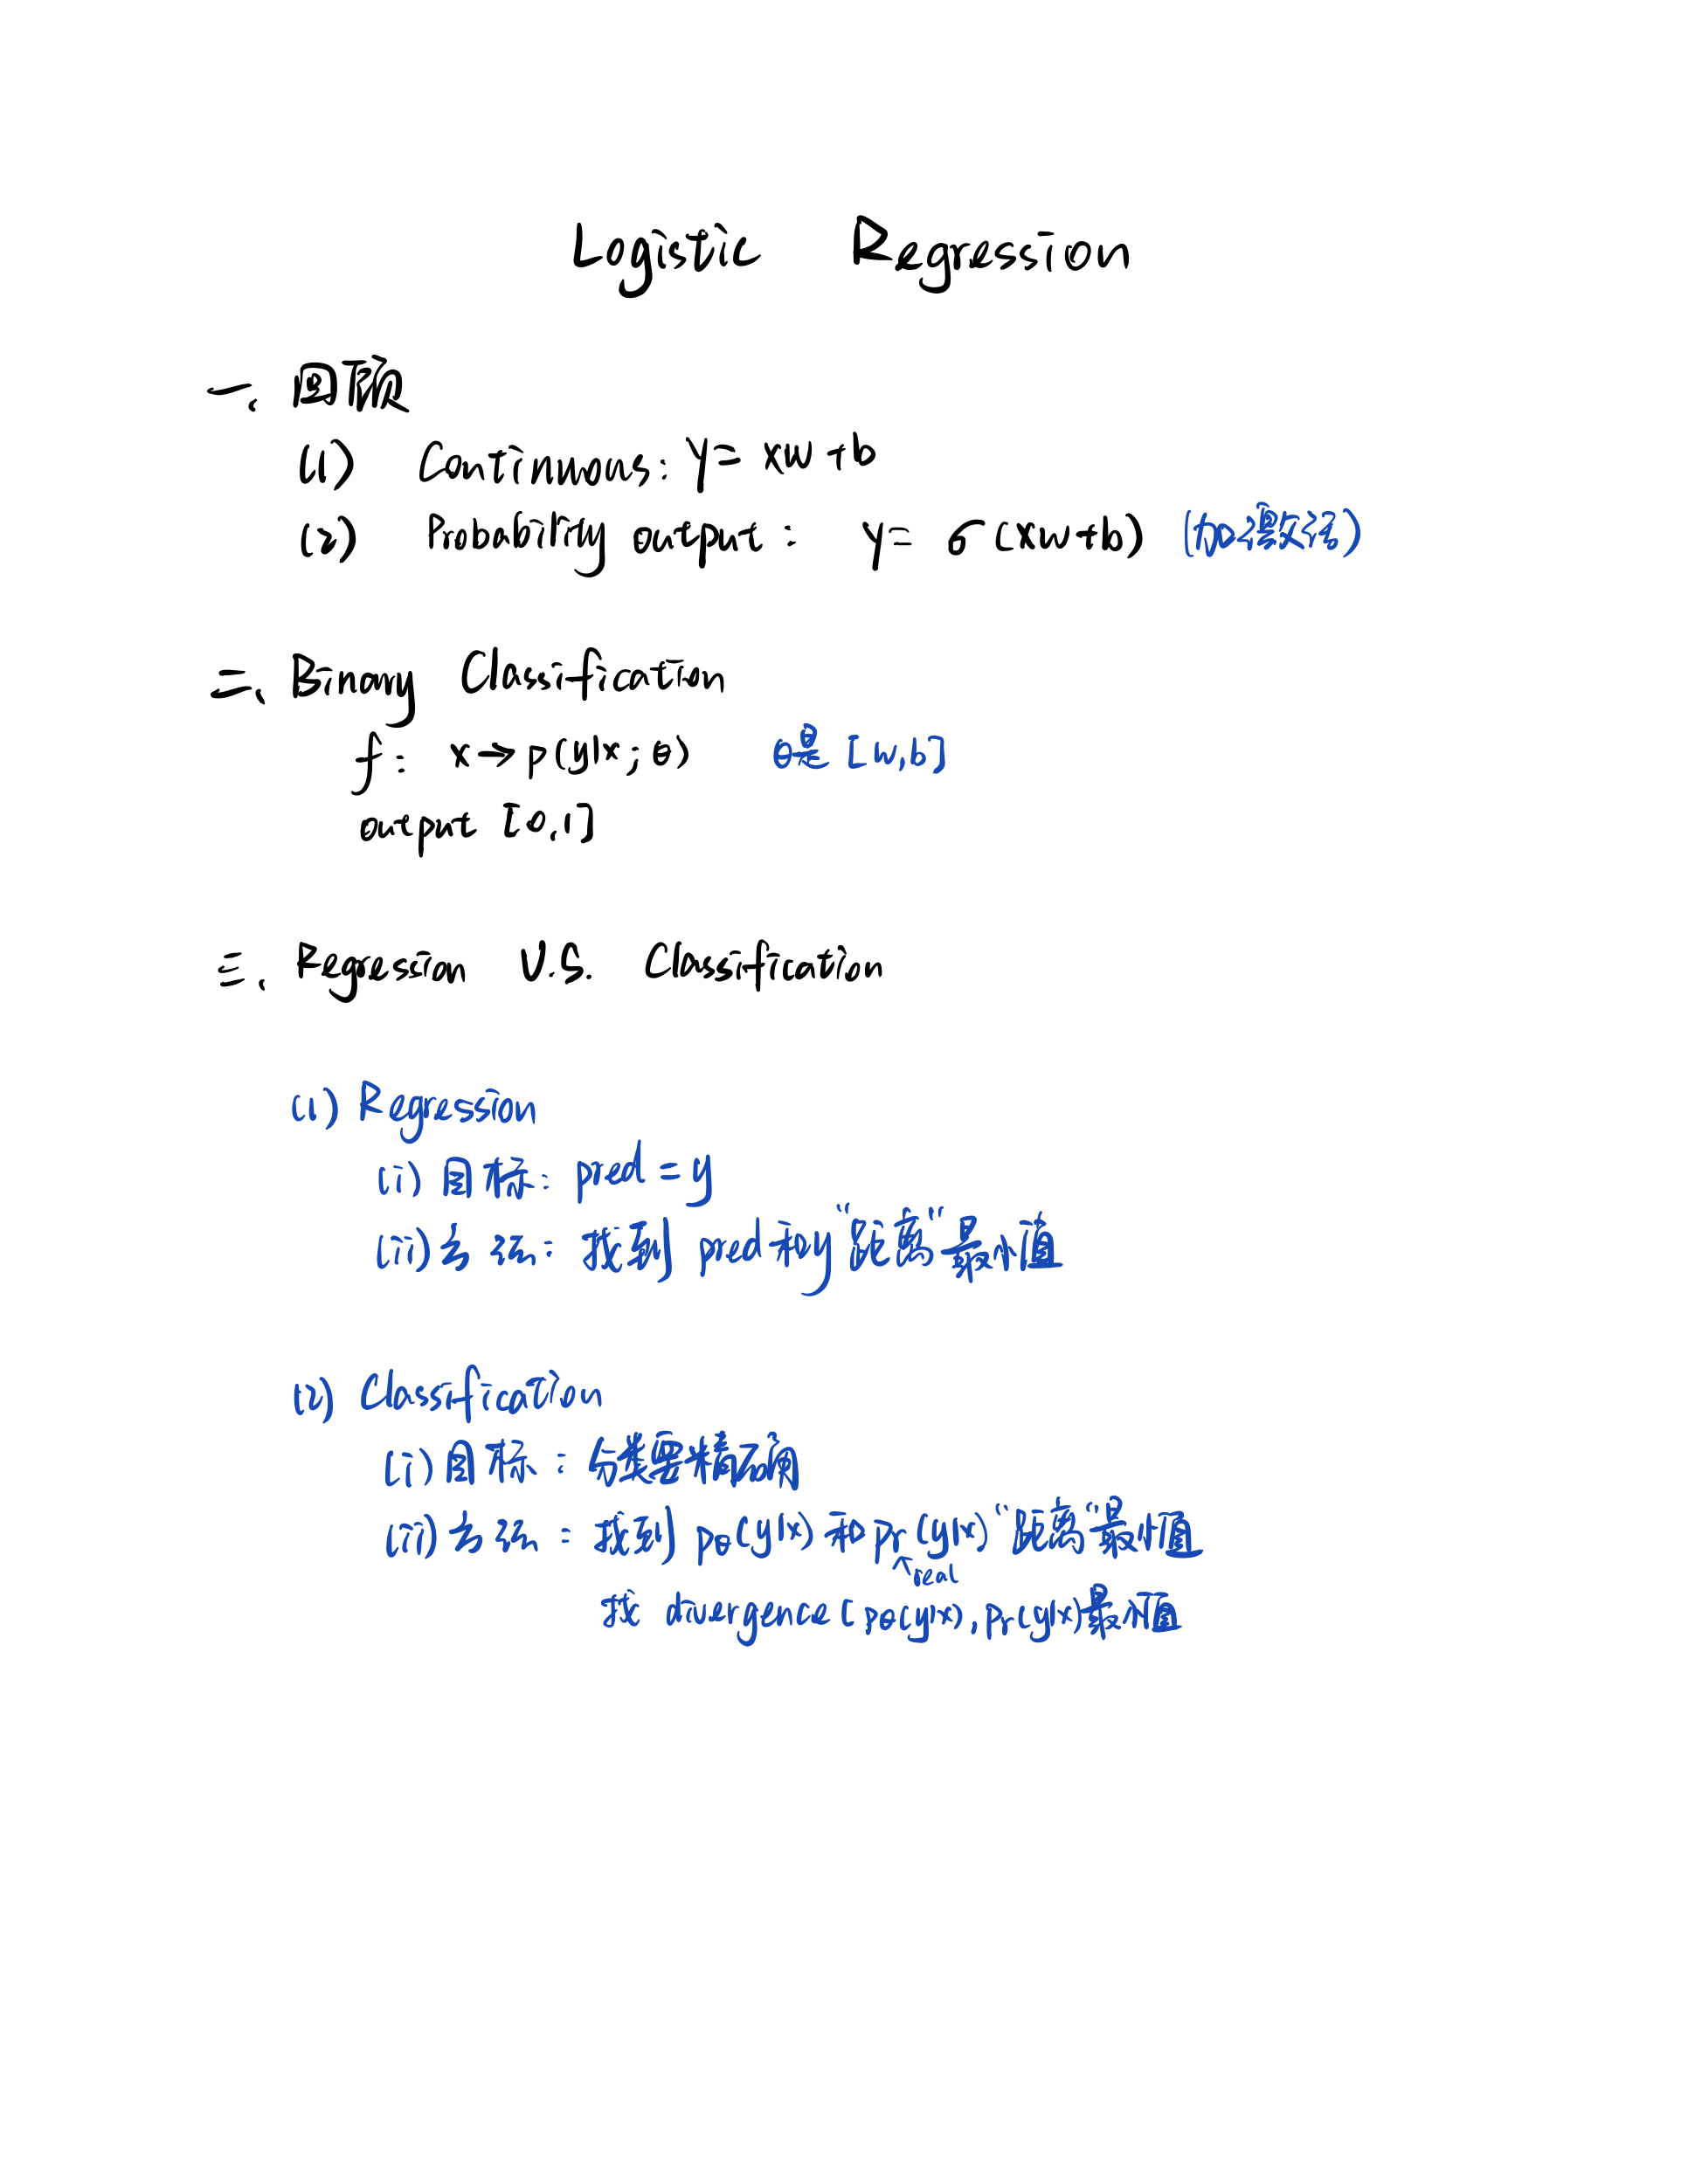 Logistic Regression
一、回顾
(1) Continuous: y = xw + b
(2) Probability output : y = σ(xw+b) (加激活)
二、Binary Classification
f: x→p(y|x; θ) θ是 [w,b]
output [0,1]
三、Regression V.S. Classification
(1) Regression
(i) 目标: pred = y
(ii) 方法: 找到 pred 和y“距离”最小值
(2) Classification
(i) 目标: 分类要精确
(ii) 方法: 找到 pθ(y|x) 和 pr(y|x)“距离”最小值
real
找 divergence(pθ(y|x), pr(y|x)最小值